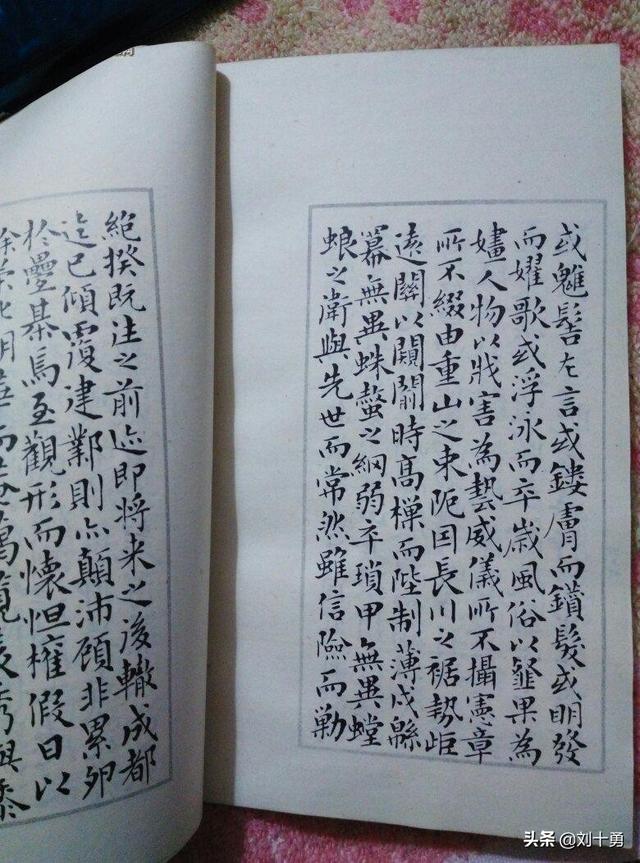 或魋髻左言或鏤膚而鑽髮或明發
而嬥歌或浮泳而卒歳風俗以韰果為
嫿人物以戕害為藝威儀所不攝憲章
所不綴由重山之束阨因長川之裾勢岠
遠關以闚䦱時高樔而陛制薄戍緜
冪無異蛛蝥之網弱卒瑣甲無異螳
蜋之衛與先世而常然雖信險而勦
絕揆既往之前迹即将来之後轍成都
迄已傾覆建鄴則亦顛沛顧非累卵
於疊棊焉至觀形而懷怛權假日以
頭条 @刘十勇